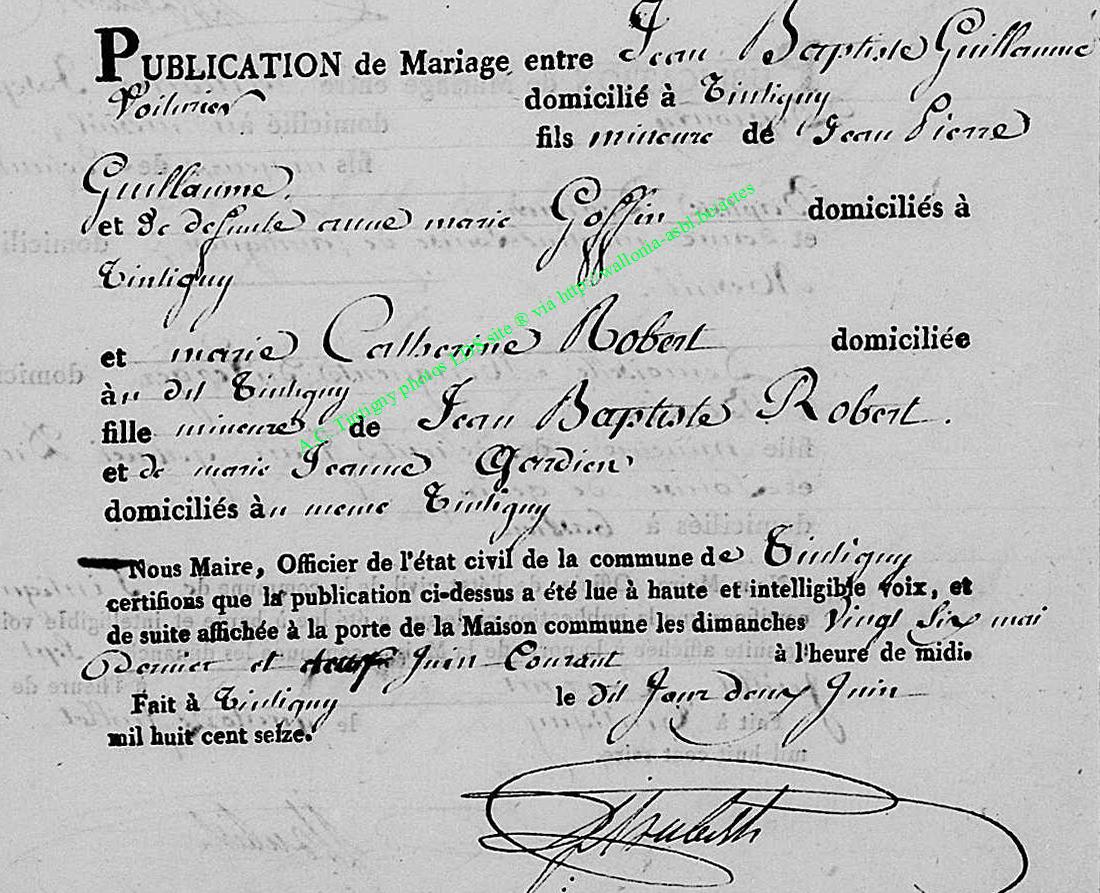 PUBLICATION de Mariage, entre Jean Baptiste Guillaume
Voiturier domicilié à Tintigny
fils mineure de Jean Pierre
Guillaume
et de defunte anne marie Goffin domiciliés à
Tintigny
et marie Catherine Robert domiciliée
àu dit Tintigny
fille mineure de Jean Baptiste Robert.
et de marie Jeanne
domiciliés àu meme Tintigny
Nous Maire, Officier de l'état civil de la commune de Tintigny
certifions que la publication ci-dessus a été lue à haute et intelligible voix, et
de suite affichée à la porte de la Maison commune les dimanches Vingt Six mai
Dernier et deux Juin Courant à l'heure de midi.
Fait à Tintigny le dit Jour deux Juin
mil huit cent seize.
A.C. Tintigny photos LDS site ® via http://wallonia-asbl.be/actes